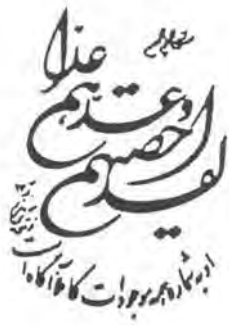 لقد احصیهم
وعدهم عدا
او به شماره همه موجودات کاملا آگاه است